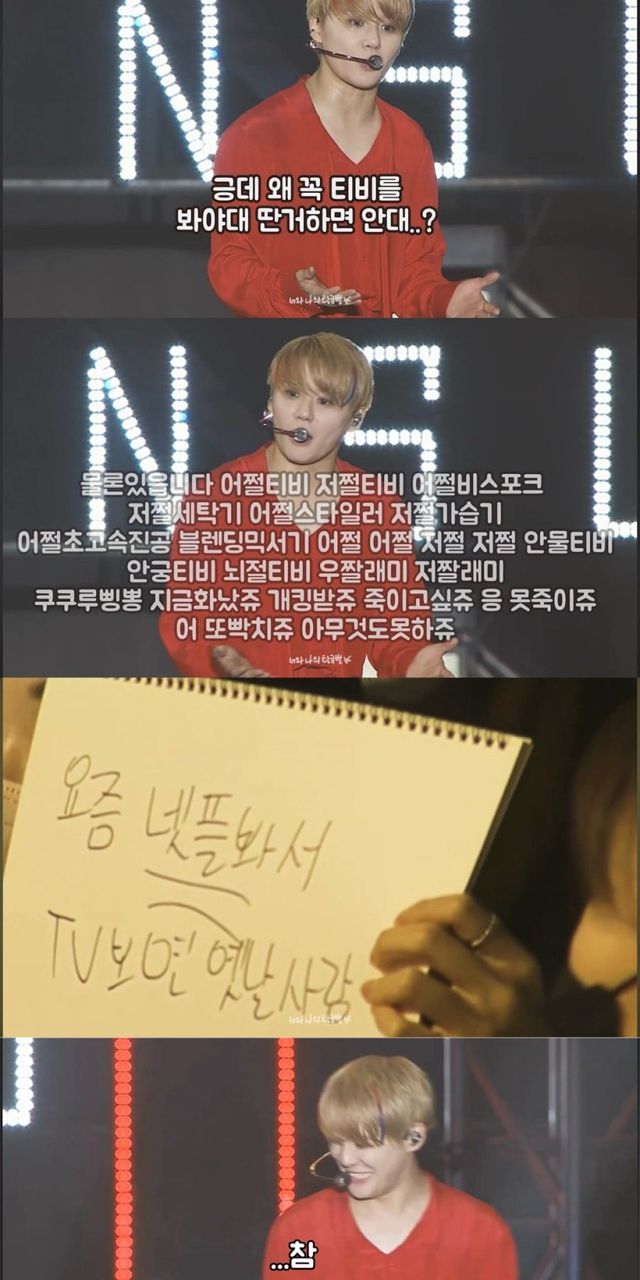 긍데 왜 꼭 티비를
봐야대 딴거하면 안대..?
너와 나의 황금별
물론있읍니다 어쩔티비 저쩔티비 어쩔비스포크
저쩔세탁기 어쩔스타일러 저쩔가습기
어쩔초고속진공 블렌딩믹서기 어쩔 어쩔 저쩔 저쩔 안물티비
안궁티비 뇌절티비 우짤래미 저짤래미
쿠쿠루삥뽕 지금화났쥬 개킹받쥬 죽이고싶쥬 응 못죽이쥬
어 또빡치쥬 아무것도못하쥬
너와 나의 황금별
요즘 넷플봐서
TV보면 옛날사람
너와 나의 황금별
...참